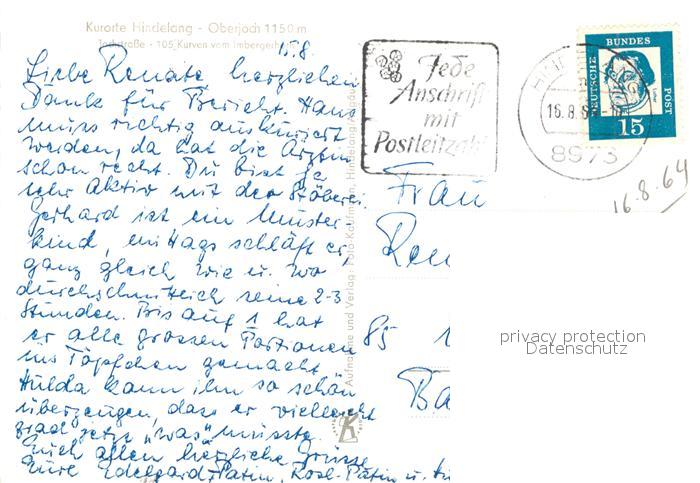 Kurorte Hindelang - Oberjoch 1150 m
Jochstraße - 105 Kurven vom Imbergerhorn
15.8.
Liebe Renate herzlichen
Dank für Bericht. Hans
muss richtig auskuriert
werden, da hat die Ärztin
schon recht. Du bist ja
sehr Aktiv mit der Stöberei.
Gerhard ist ein Muster
kind, mittags schläft er,
ganz gleich wie u. wo
durchschnittlich seine 2-3
Stunden. Bis auf 1 hat
er alle grossen Portionen
ins Töpfchen gemacht
Hulda kann ihm so schön
überzeugen, dass er vielleicht
grad jetzt "was" müsste.
Euch allen herzliche Grüsse
Eure Edelgard, Patin, Rosl-Patin u.
Aufnahme und Verlag: Foto-Kaufmann, Hindelang/Allgäu
K
Jede
Anschrift
mit
Postleitzahl
16.8.6
8973
DEUTSCHE
BUNDES
POST
15
16.8.64
Frau
Ren
85
Ba
privacy protection
Datenschutz